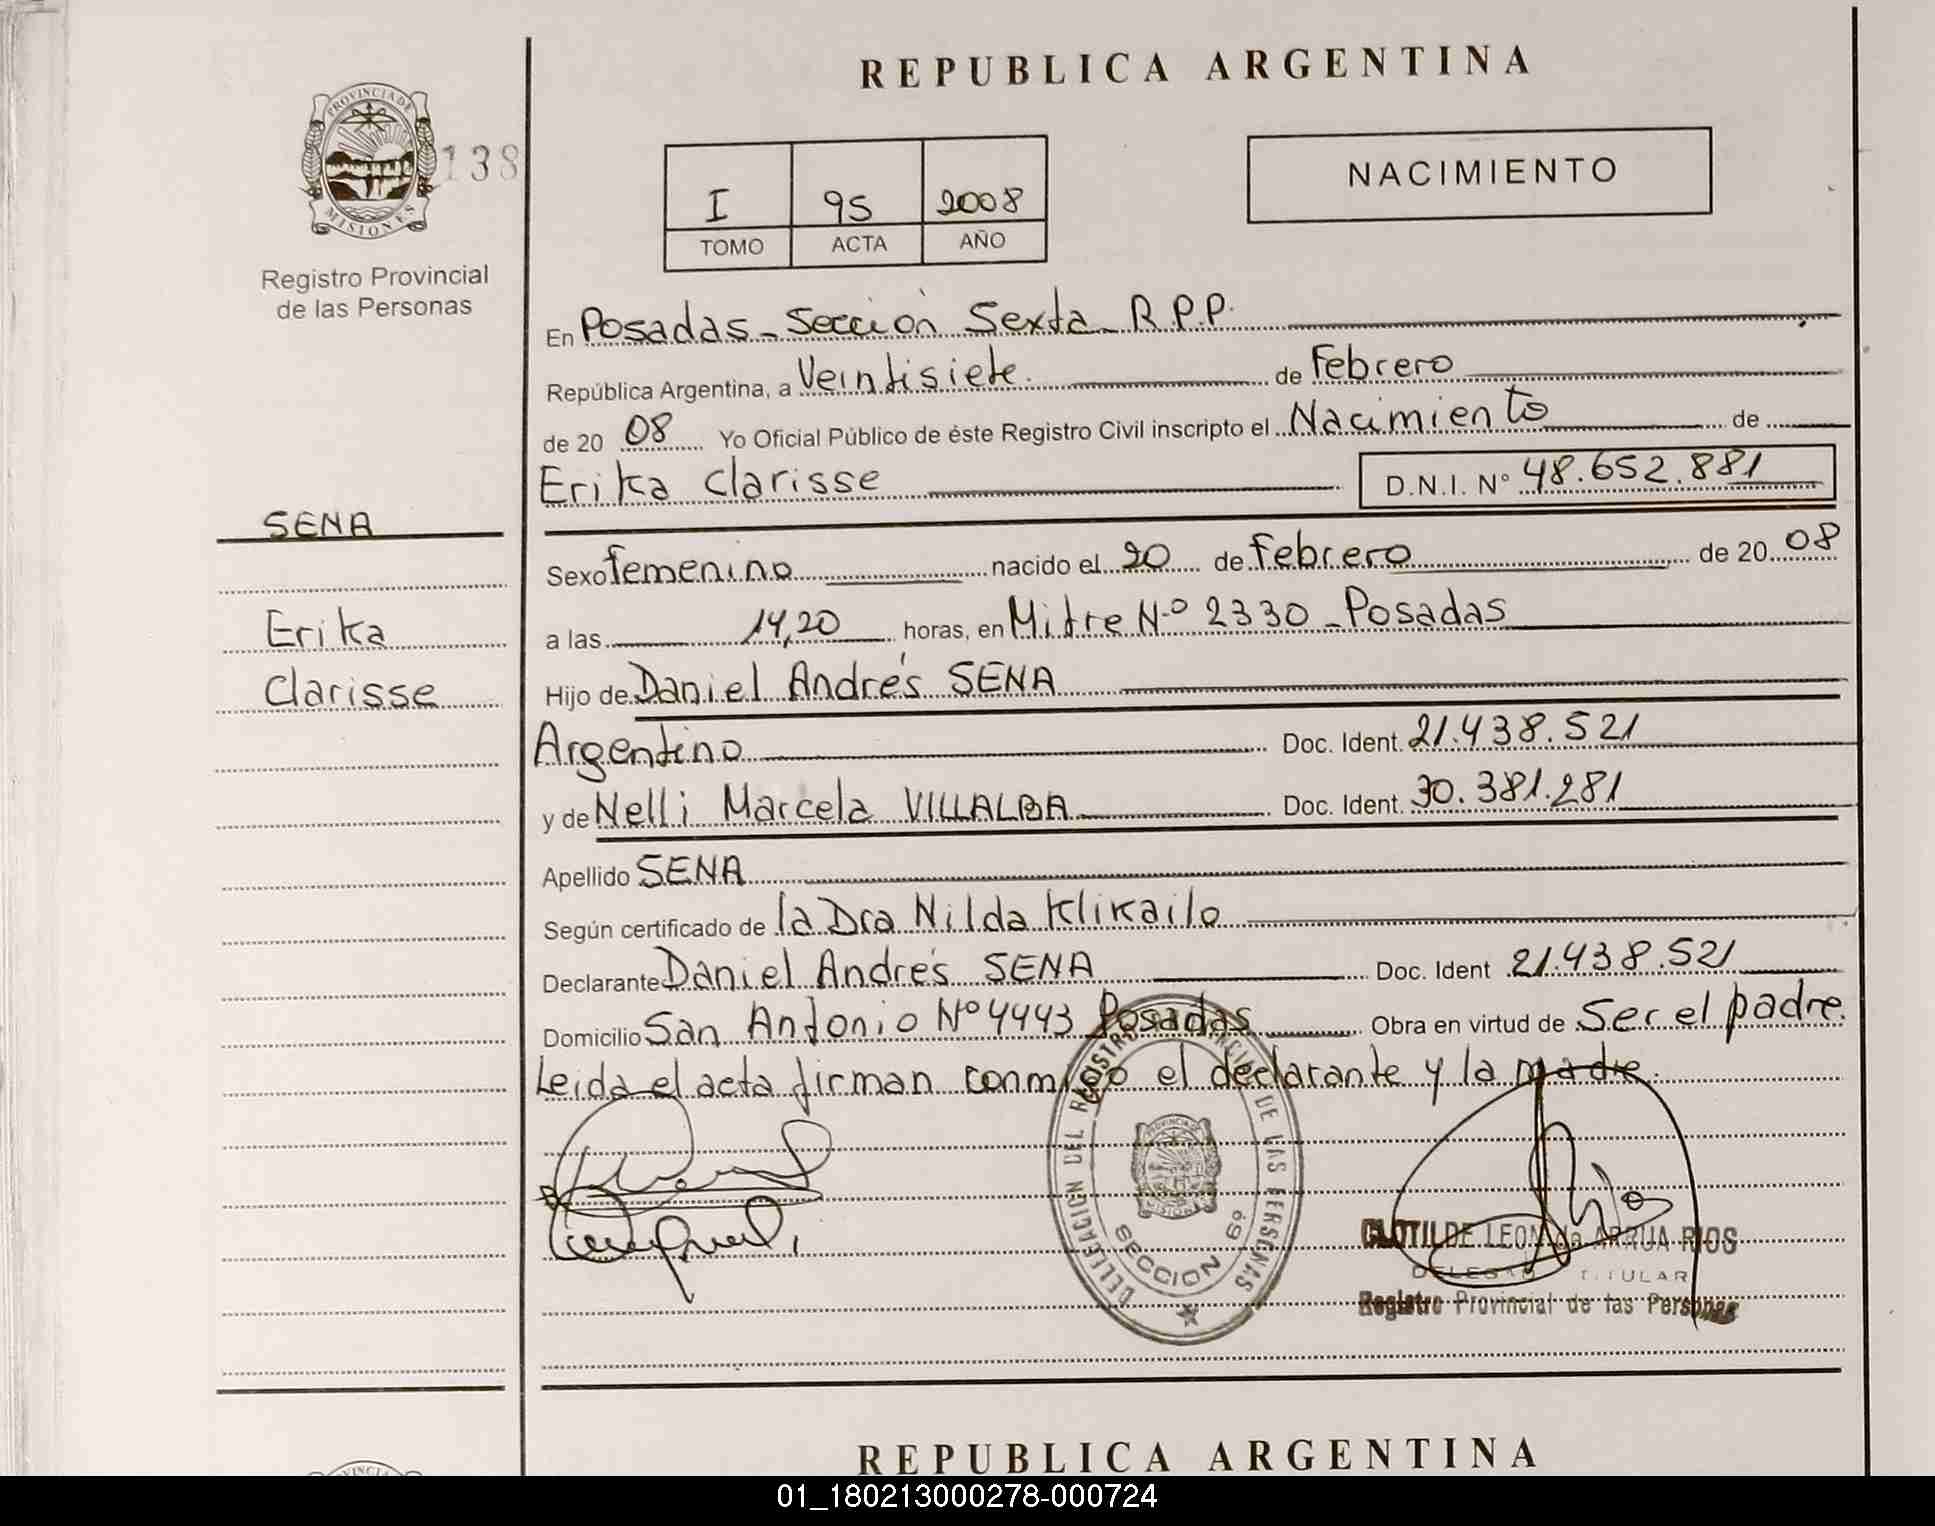 REPUBLICA ARGENTINA
PROVINCIA DE MISIONES
138
Registro Provincial
de las Personas
I 95 2008
TOMO ACTA AÑO
NACIMIENTO
En Posadas - Sección Sexta - R.P.P.
República Argentina, a Veintisiete. de Febrero
de 20 08 Yo Oficial Público de éste Registro Civil inscripto el Nacimiento de
Erika Clarisse D.N.I. N° 48.652.881
SENA
Erika
Clarisse
Sexo femenino nacido el 20 de Febrero de 20 08
a las 14,20 horas, en Mitre N.º 2330 - Posadas
Hijo de Daniel Andrés SENA
Argentino Doc. Ident. 21.438.521
y de Nelli Marcela VILLALBA Doc. Ident. 30.381.281
Apellido SENA
Según certificado de la Dra Nilda Klikailo
Declarante Daniel Andrés SENA Doc. Ident 21.438.521
Domicilio San Antonio Nº 4443 Posadas Obra en virtud de Ser el padre.
Leida el acta firman conmigo el declarante y la madre.
DELEGACION DEL REGISTRO PROVINCIAL DE LAS PERSONAS
SECCION 6º
PROVINCIA DE MISIONES
CLOTILDE LEON de ARRUA RIOS
DELEGADA TITULAR
Registro Provincial de las Personas
REPUBLICA ARGENTINA
01_180213000278-000724